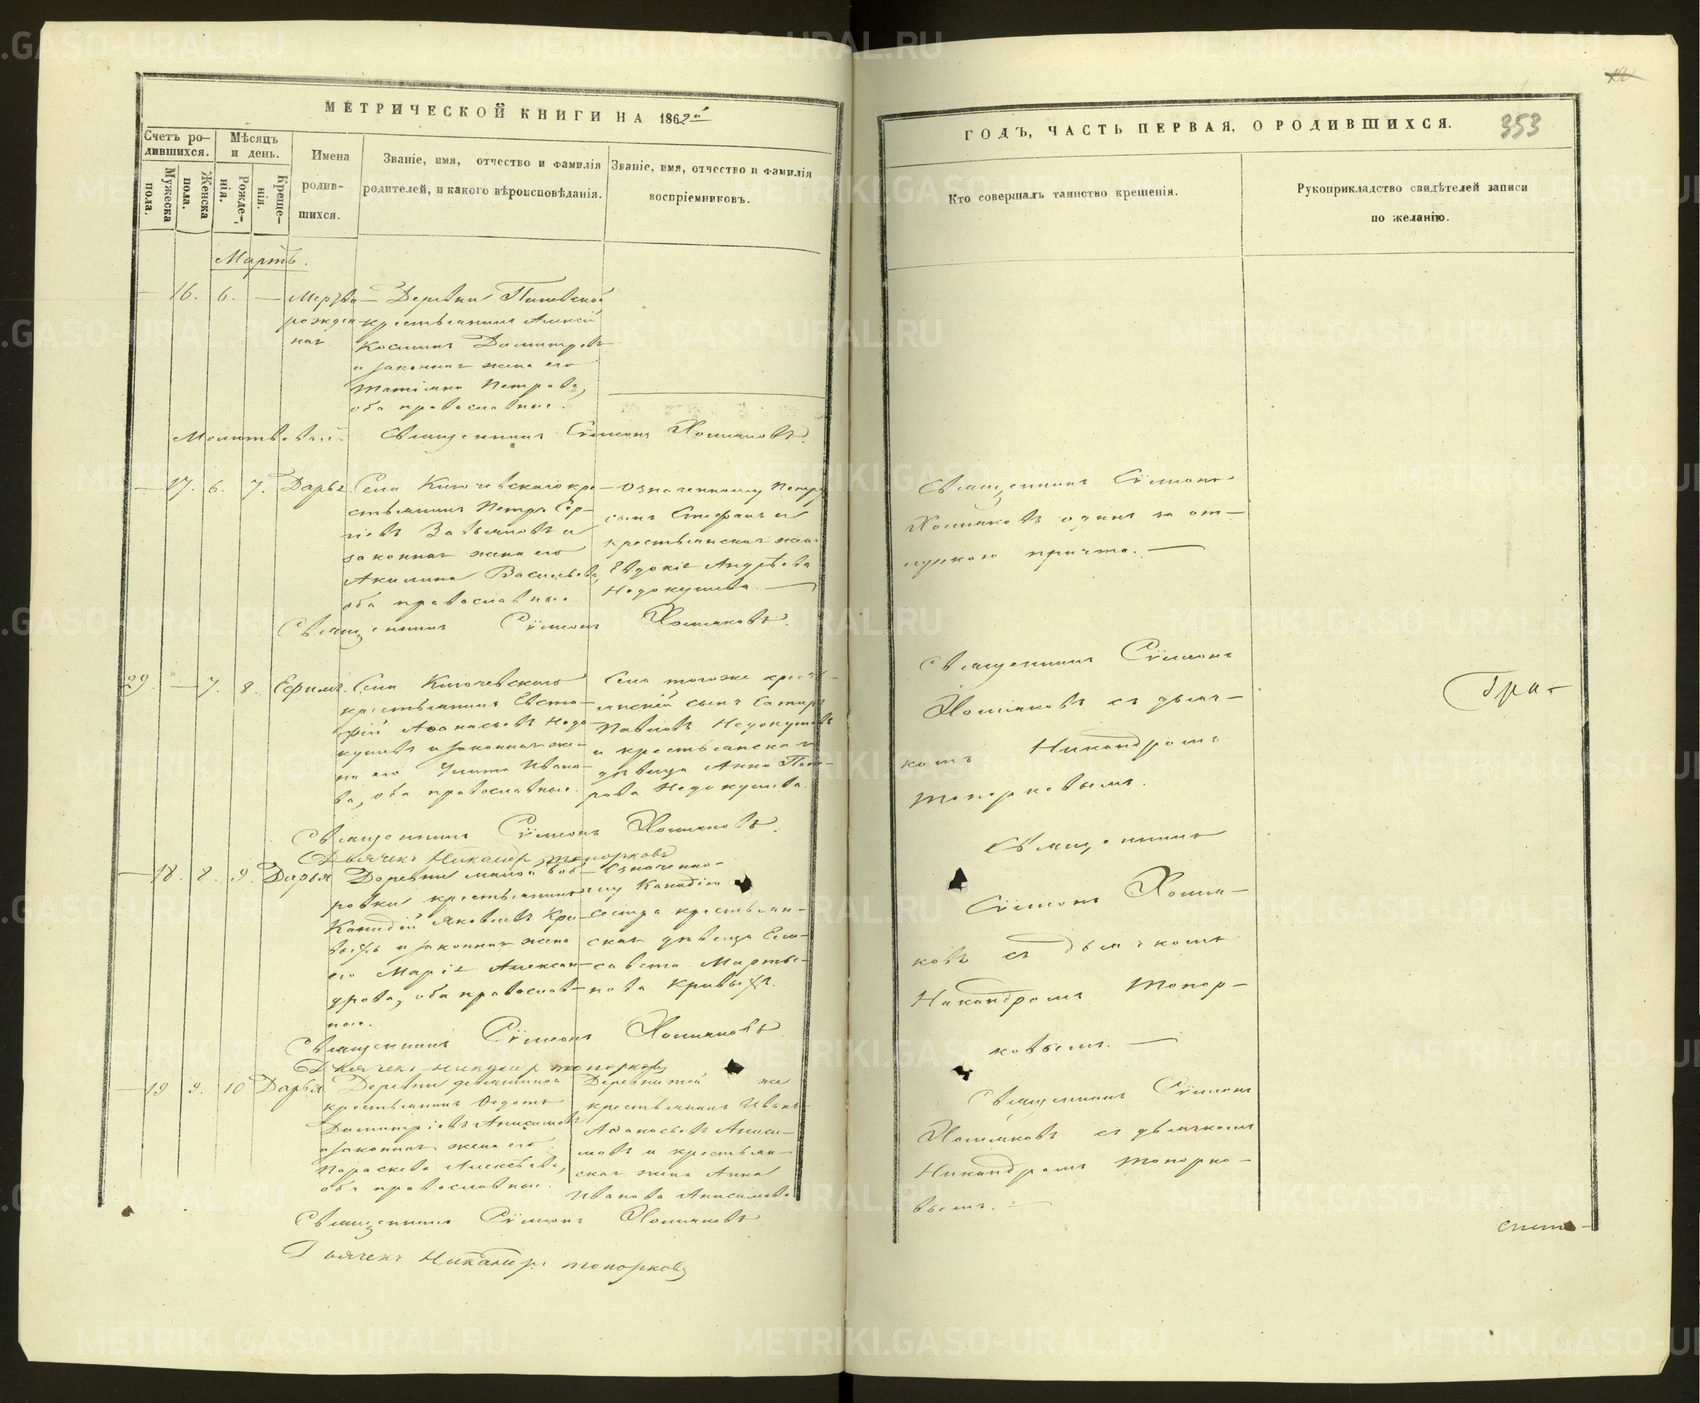 МЕТРИЧЕСКОЙ КНИГИ НА 1862й
Счетъ ро-
дившихся.
Мужеска
пола.
Женска
пола.
Мѣсяцъ
и день.
Рожде-
нія.
Креще-
нія.
Имена
родив-
шихся.
Званіе, имя, отчество и фамилія
родителей, и какого вѣроисповѣданія.
Званіе, имя, отчество и фамилія
воспріемниковъ.
Мартъ.
— 16. 6. — Мертво-
рожден-
ная
Деревни
крестьянинъ Алексѣй
Косминъ Димитріевъ
и законная жена его
Татіана Петрова,
оба православные.
Священникъ Сѵмеонъ Хомяковъ.
— 17. 6. 7. Дарья
Села Ключевскаго кре-
стьянинъ Петръ Сер-
гіевъ и
законная жена его
Акилина Васильева,
оба православные.
Означенному Петру
сынъ Стефанъ и
крестьянская жена
Евдокія Андреева
Недокушева.
Священникъ Сѵмеонъ Хомяковъ.
29. — 7. 8. Ефимъ.
Села Ключевскаго
крестьянинъ Евста-
фій Аѳанасьевъ Недо-
кушевъ и законная же-
на его Улита Ивано-
ва, оба православные.
Села тогоже кресть-
янскій сынъ
Павловъ Недокушевъ
и крестьянская
дѣвица Анна
Недокушева.
Священникъ Сѵмеонъ Хомяковъ.
Дьячекъ Никандръ Топорковъ
— 18. 8. 9. Дарья
Деревни малой Боб-
ровки крестьянинъ
Яковлевъ Кри-
выхъ и законная жена
его Марія Алексан-
дрова, оба православ-
ные.
Означенно-
му
сестра крестьян-
ская дѣвица Ели-
савета Мартье-
нова Кривыхъ.
Священникъ Сѵмеонъ Хомяковъ.
Дьячекъ Никандръ Топорковъ
— 19. 9. 10. Дарья
Деревни
крестьянинъ Ѳедотъ
Димитріевъ Анисимовъ
и законная жена его
Параскева Алексѣева,
оба православные.
Деревни той же
крестьянинъ Иванъ
Аѳанасьевъ Аниси-
мовъ и крестьян-
ская жена Анна
Иванова Анисимова
Священникъ Сѵмеонъ Хомяковъ
Дьячекъ Никандръ Топорковъ
ГОДЪ, ЧАСТЬ ПЕРВАЯ, О РОДИВШИХСЯ.
353
Кто совершалъ таинство крещенія.
Рукоприкладство свидѣтелей записи
по желанію.
Священникъ Сѵмеонъ
Хомяковъ одинъ за от-
лучкою причта.
Священникъ Сѵмеонъ
Хомяковъ съ дьяч-
комъ Никандромъ
Топорковымъ.
Священникъ
Сѵмеонъ Хомя-
ковъ съ дьячкомъ
Никандромъ Топор-
ковымъ.
Священникъ Сѵмеонъ
Хомяковъ съ дьячкомъ
Никандромъ Топорко-
вымъ.
METRIKI.GASO-URAL.RU